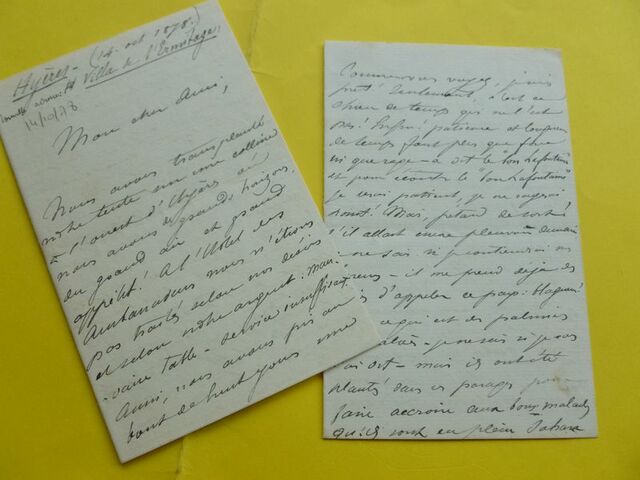 Hyères - (14. oct 1878.)
Villa de l'Ermitage.
14/10/78
Mon cher Ami,
Nous avons transplanté
notre tente sur une colline
à l'ouest d'Hyères où
nous avons de grands horizons,
du grand air et grand
appétit! A l'Hôtel des
Ambassadeurs nous n'étions
pas traités selon nos désirs
et selon notre argent: mau-
vaise table - service insuffisant.
Aussi, nous avons pris au
bout de huit jours une
Comme vous voyez, je suis
prêt! Seulement, c'est ce
chien de temps qui ne l'est
pas! Enfin! patience et longueur
de temps font plus que force
ni que rage - a dit le bon Lafontaine
et pour écouter le bon Lafontaine
je serai patient, je ne rugirai
Mais, quand de
s'il allait encore pleuvoir demain
je ne sais si
- il me prend déjà des
d'appeler ce pays:
qui est des palmiers
- je ne sais si je vous
ai dit - mais ils ont été
plantés dans ces parages pour
faire accroire aux bons malades
qu'ils sont en plein Sahara